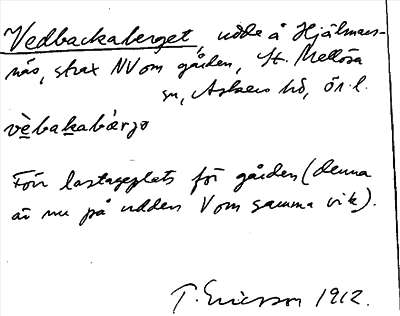 Vedbackaberget, udde å Hjälmars-
näs, strax NV om gården, St. Mellösa
sn, Askers hd, Ör. l.
vèbakabárjə
Förr lastageplats för gården (denna
är nu på udden V om samma vik).
T. Ericsson 1912.